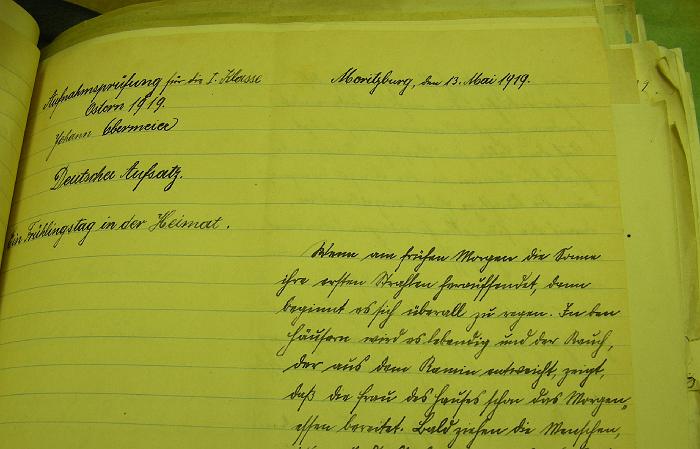 Aufnahmsprüfung für die I. Klasse
Ostern 1919.
Johann Obermeier
Deutscher Aufsatz.
Ein Frühlingstag in der Heimat.
Moritzburg, den 13. Mai 1919.
Wenn am frühen Morgen die Sonne
ihre ersten Strahlen heraufsendet, dann
beginnt es sich überall zu regen. In den
Häusern wird es lebendig und der Rauch,
der aus dem Kamin entweicht, zeigt,
daß die Frau des Hauses schon das Morgen-
essen bereitet. Bald ziehen die Menschen,